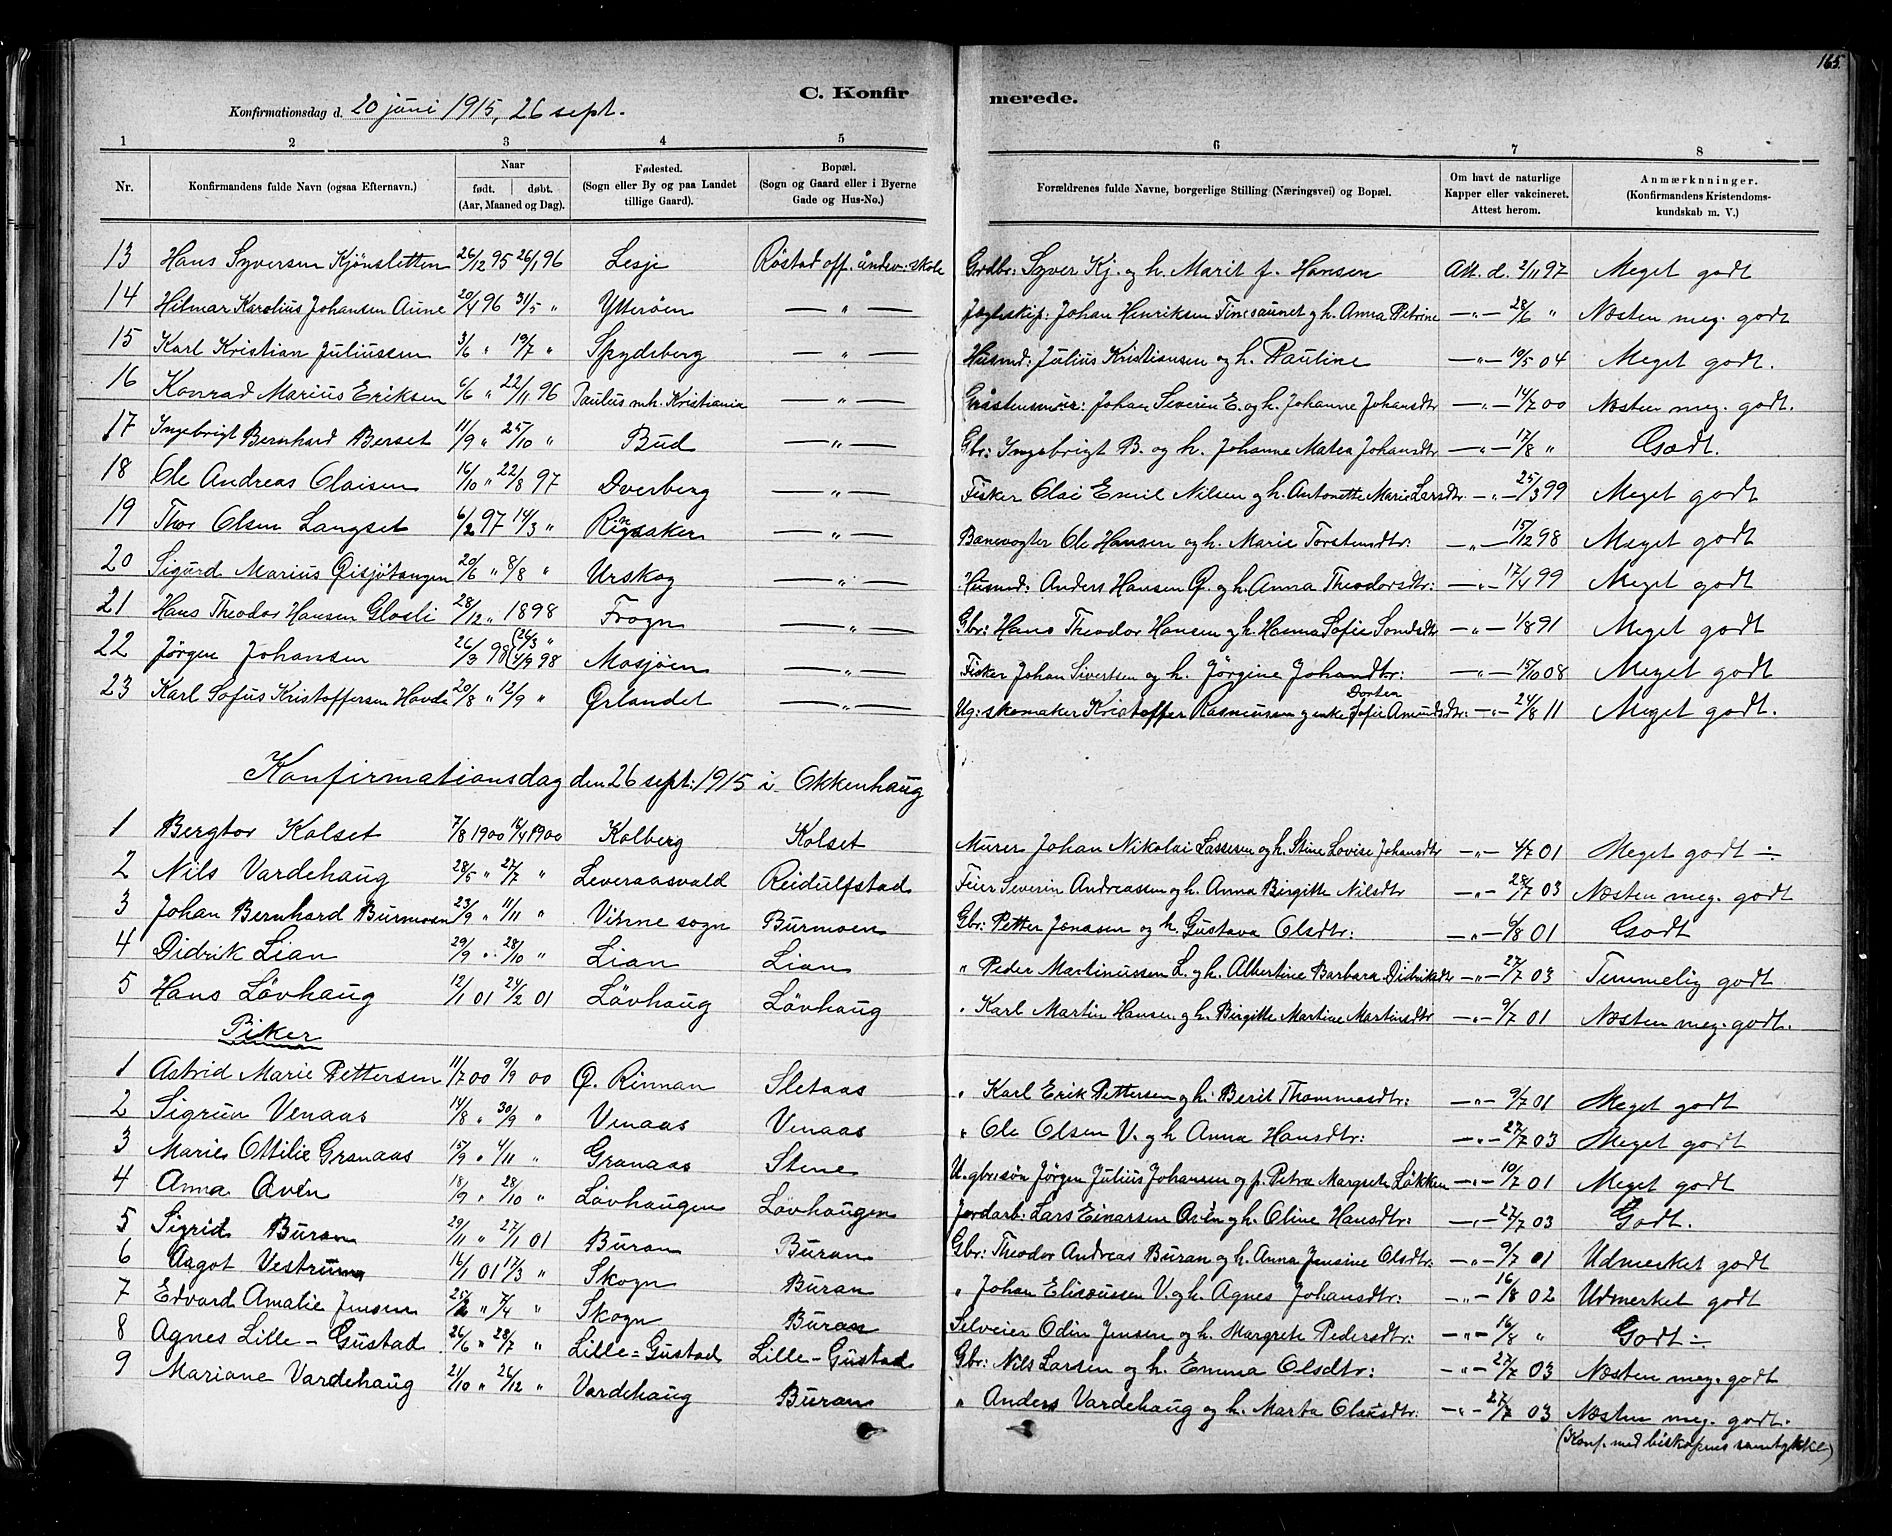 165.
C. Konfirmerede.
Konfirmationsdag d. 20 juni 1915, 26 sept.
1 2 3 4 5 6 7 8
Nr. Konfirmandens fulde Navn (ogsaa Efternavn.) Naar født. døbt. (Aar, Maaned og Dag). Fødested. (Sogn eller By og paa Landet tillige Gaard). Bopæl. (Sogn og Gaard eller i Byerne Gade og Hus-No.) Forældrenes fulde Navne, borgerlige Stilling (Næringsvei) og Bopæl. Om havt de naturlige Kapper eller vakcineret. Attest herom. Anmærknninger. (Konfirmandens Kristendomskundskab m. V.)
13 Hans Syversen Kjönsletten 26/12 95 26/1 96 Lesje Röstad off. åndsv: skole Grdbr: Syver Kj. og h. Marit f. Hansen Att. d. 2/11 97 Meget godt
14 Hilmar Karolius Johansen Aune 20/4 96 31/5 " Ytterøen — " — Jægteskip: Johan Henriksen Tinesaunet g h. Anna Petrine —"— 28/6 " Næsten meg. godt
15 Karl Kristian Juliussen 3/6 " 19/7 " Spydeberg — " — Husmd: Julius Kristiansen og h. Pauline —"— 19/5 04 Meget godt.
16 Konrad Marius Eriksen 6/6 " 22/11 96 Paulus mh. Kristiania — " — Gråstensmur: Johan Severin E. og h. Johanne Johansdtr —"— 14/7 00 Næsten meg. godt.
17 Ingebrigt Bernhard Berset 11/9 " 25/10 " Bud — " — Gbr: Ingebrigt B. og h. Johanne Matea Johansdtr —"— 17/8 " Godt.
18 Ole Andreas Olaisen 16/10 " 22/8 97 Dverberg — " — Fisker Olai Emil Nilsen og h. Antonette Marie Larsdtr —"— 25/3 99 Meget godt
19 Thor Olsen Langset 6/2 97 14/3 " Ringsaker — " — Banevogter Ole Hansen og h. Marie Torstensdtr: —"— 15/12 98 Meget godt
20 Sigurd Marius Øisjötangen 20/6 " 8/8 " Urskog — " — Husmd: Anders Hansen Ø. og h. Anna Theodorsdtr: —"— 17/4 99 Meget godt
21 Hans Theodor Hansen Glosli 28/12 " 1898 Frogn — " — Gbr: Hans Theodor Hansen g h. Hanna Sofie —"— 1/8 91 Meget godt
22 Jørgen Johansen 26/3 98 (26/3 " 4/9 98 Mosjøen — " — Fisker Johan Sivertsen og h. Jörgine Johansdtr: —"— 15/10 08 Meget godt
23 Karl Sofus Kristoffersen Hovde 20/8 " 12/9 " Ørlandet — " — Ug: skomaker Kristoffer Rasmussen g enke Dortea Sofie Amundsdtr: —"— 24/8 11 Meget godt.
Konfirmationsdag den 26 sept: 1915 i Okkenhaug
1 Bergtor Kolset 7/8 1900 1900 Kolberg Kolset Murer Johan Nikolai Lassesen og h. Stine Lovise Johansdtr —"— 4/7 01 Meget godt ÷
2 Nils Vardehaug 28/5 " 27/7 " Leveraasvald Reidulfstad Feier Severin Andreassen og h. Anna Birgitte Nilsdtr —"— 28/7 03 Næsten meg. godt
3 Johan Bernhard Burmoen 23/9 " 11/11 " Vinne sogn Burmoen Gbr: Petter Jonasen og h. Gustava Olsdtr: —"— 6/8 01 Godt
4 Didrik Lian 29/9 " 28/10 " Lian Lian " Peder Martinussen L. g h. Albertine Barbara Didriksdtr —"— 27/7 03 Temmelig godt
5 Hans Lövhaug 12/1 01 24/2 01 Lövhaug Lövhaug " Karl Martin Hansen g h. Birgitte Martine Martinsdtr —"— 9/7 01 Næsten meg. godt.
Piker
1 Astrid Marie Pettersen 11/7 00 9/9 00 Ø. Rinnan Sletaas " Karl Erik Pettersen g h. Berit Thommasdtr: —"— 9/7 01 Meget godt
2 Sigrun Venaas 14/8 " 30/9 " Venaas Venaas " Ole Olsen V. g h. Anna Hansdtr: —"— 27/7 03 Meget godt
3 Marie Ottilie Granaas 15/9 " 4/11 " Granaas Stene U. gbrsön Jörgen Julius Johansen og p. Petra Margrete Løkken —"— 10/7 01 Meget godt
4 Anna Avén 18/9 " 28/10 " Lövhaugen Lövhaugen Jordarb: Lars Einarsen Avén g h. Oline Hansdtr: —"— 27/7 03 Godt.
5 Sigrid Buran 29/11 " 27/1 01 Buran Buran Gbr: Theodor Andreas Buran g h. Anna Jensine Olsdtr: —"— 9/7 01 Udmerket godt
6 Aagot Vestrum 16/1 01 17/3 " Skogn Buran " Johan Eliseussen V. g h. Agnes Johansdtr: —"— 16/8 02 Udmerket godt
7 Edvarda Amalie Jensen 25/2 " 7/4 " Skogn Buran Selveier Odin Jensen og h. Margrete Pedersdtr: —"— 16/8 " Godt ÷
8 Agnes Lille-Gustad 26/6 " 28/7 " Lille=Gustad Lille-Gustad Gbr: Nils Larsen og h. Emma Olsdtr: —"— 27/7 03 Næsten meg. godt
9 Mariane Vardehaug 21/10 " 26/12 " Vardehaug Buran " Anders Vardehaug og h. Marta Olausdtr: —"— 27/7 03 Næsten meg. godt.
(Konf. med biskopens samtykke)